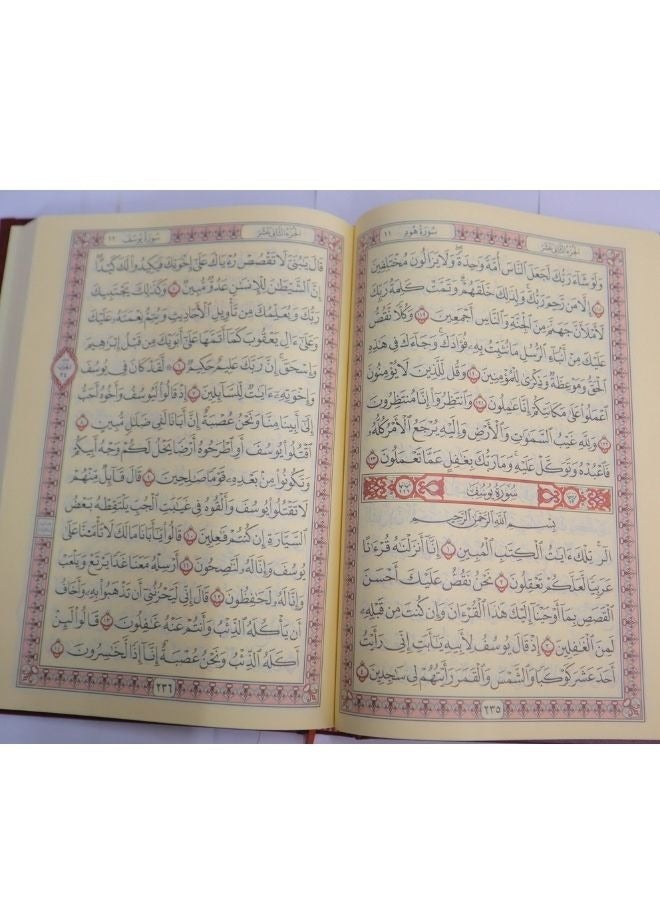 الجزء الثاني عشر
سورة هود ١١
وَلَوْ شَآءَ رَبُّكَ لَجَعَلَ النَّاسَ أُمَّةً وَٰحِدَةً وَلَا يَزَالُونَ مُخْتَلِفِينَ
١١٨ إِلَّا مَن رَّحِمَ رَبُّكَ وَلِذَٰلِكَ خَلَقَهُمْ وَتَمَّتْ كَلِمَةُ رَبِّكَ
لَأَمْلَأَنَّ جَهَنَّمَ مِنَ الْجِنَّةِ وَالنَّاسِ أَجْمَعِينَ ١١٩ وَكُلًّا نَّقُصُّ
عَلَيْكَ مِنْ أَنۢبَآءِ الرُّسُلِ مَا نُثَبِّتُ بِهِۦ فُؤَادَكَ وَجَآءَكَ فِى هَٰذِهِ
الْحَقُّ وَمَوْعِظَةٌ وَذِكْرَىٰ لِلْمُؤْمِنِينَ ١٢٠ وَقُل لِّلَّذِينَ لَا يُؤْمِنُونَ
اعْمَلُوا۟ عَلَىٰ مَكَانَتِكُمْ إِنَّا عَٰمِلُونَ ١٢١ وَانتَظِرُوٓا۟ إِنَّا مُنتَظِرُونَ
١٢٢ وَلِلَّهِ غَيْبُ السَّمَٰوَٰتِ وَالْأَرْضِ وَإِلَيْهِ يُرْجَعُ الْأَمْرُ كُلُّهُۥ
فَاعْبُدْهُ وَتَوَكَّلْ عَلَيْهِ وَمَا رَبُّكَ بِغَٰفِلٍ عَمَّا تَعْمَلُونَ ١٢٣
سُورَةُ يُوسُفَ
بِسْمِ اللَّهِ الرَّحْمَٰنِ الرَّحِيمِ
الٓر تِلْكَ ءَايَٰتُ الْكِتَٰبِ الْمُبِينِ ١ إِنَّآ أَنزَلْنَٰهُ قُرْءَٰنًا
عَرَبِيًّا لَّعَلَّكُمْ تَعْقِلُونَ ٢ نَحْنُ نَقُصُّ عَلَيْكَ أَحْسَنَ
الْقَصَصِ بِمَآ أَوْحَيْنَآ إِلَيْكَ هَٰذَا الْقُرْءَانَ وَإِن كُنتَ مِن قَبْلِهِۦ
لَمِنَ الْغَٰفِلِينَ ٣ إِذْ قَالَ يُوسُفُ لِأَبِيهِ يَٰٓأَبَتِ إِنِّى رَأَيْتُ
أَحَدَ عَشَرَ كَوْكَبًا وَالشَّمْسَ وَالْقَمَرَ رَأَيْتُهُمْ لِى سَٰجِدِينَ ٤
٢٣٥
الجزء الثاني عشر
سورة يوسف ١٢
قَالَ يَٰبُنَىَّ لَا تَقْصُصْ رُءْيَاكَ عَلَىٰٓ إِخْوَتِكَ فَيَكِيدُوا۟ لَكَ كَيْدًا
إِنَّ الشَّيْطَٰنَ لِلْإِنسَٰنِ عَدُوٌّ مُّبِينٌ ٥ وَكَذَٰلِكَ يَجْتَبِيكَ
رَبُّكَ وَيُعَلِّمُكَ مِن تَأْوِيلِ الْأَحَادِيثِ وَيُتِمُّ نِعْمَتَهُۥ عَلَيْكَ
وَعَلَىٰٓ ءَالِ يَعْقُوبَ كَمَآ أَتَمَّهَا عَلَىٰٓ أَبَوَيْكَ مِن قَبْلُ إِبْرَٰهِيمَ
وَإِسْحَٰقَ إِنَّ رَبَّكَ عَلِيمٌ حَكِيمٌ ٦ لَّقَدْ كَانَ فِى يُوسُفَ
وَإِخْوَتِهِۦٓ ءَايَٰتٌ لِّلسَّآئِلِينَ ٧ إِذْ قَالُوا۟ لَيُوسُفُ وَأَخُوهُ أَحَبُّ
إِلَىٰٓ أَبِينَا مِنَّا وَنَحْنُ عُصْبَةٌ إِنَّ أَبَانَا لَفِى ضَلَٰلٍ مُّبِينٍ ٨
اقْتُلُوا۟ يُوسُفَ أَوِ اطْرَحُوهُ أَرْضًا يَخْلُ لَكُمْ وَجْهُ أَبِيكُمْ
وَتَكُونُوا۟ مِنۢ بَعْدِهِۦ قَوْمًا صَٰلِحِينَ ٩ قَالَ قَآئِلٌ مِّنْهُمْ
لَا تَقْتُلُوا۟ يُوسُفَ وَأَلْقُوهُ فِى غَيَٰبَتِ الْجُبِّ يَلْتَقِطْهُ بَعْضُ
السَّيَّارَةِ إِن كُنتُمْ فَٰعِلِينَ ١٠ قَالُوا۟ يَٰٓأَبَانَا مَا لَكَ لَا تَأْمَ۫نَّا عَلَىٰ
يُوسُفَ وَإِنَّا لَهُۥ لَنَٰصِحُونَ ١١ أَرْسِلْهُ مَعَنَا غَدًا يَرْتَعْ وَيَلْعَبْ
وَإِنَّا لَهُۥ لَحَٰفِظُونَ ١٢ قَالَ إِنِّى لَيَحْزُنُنِىٓ أَن تَذْهَبُوا۟ بِهِۦ وَأَخَافُ
أَن يَأْكُلَهُ الذِّئْبُ وَأَنتُمْ عَنْهُ غَٰفِلُونَ ١٣ قَالُوا۟ لَئِنْ
أَكَلَهُ الذِّئْبُ وَنَحْنُ عُصْبَةٌ إِنَّآ إِذًا لَّخَٰسِرُونَ ١٤
٢٣٦